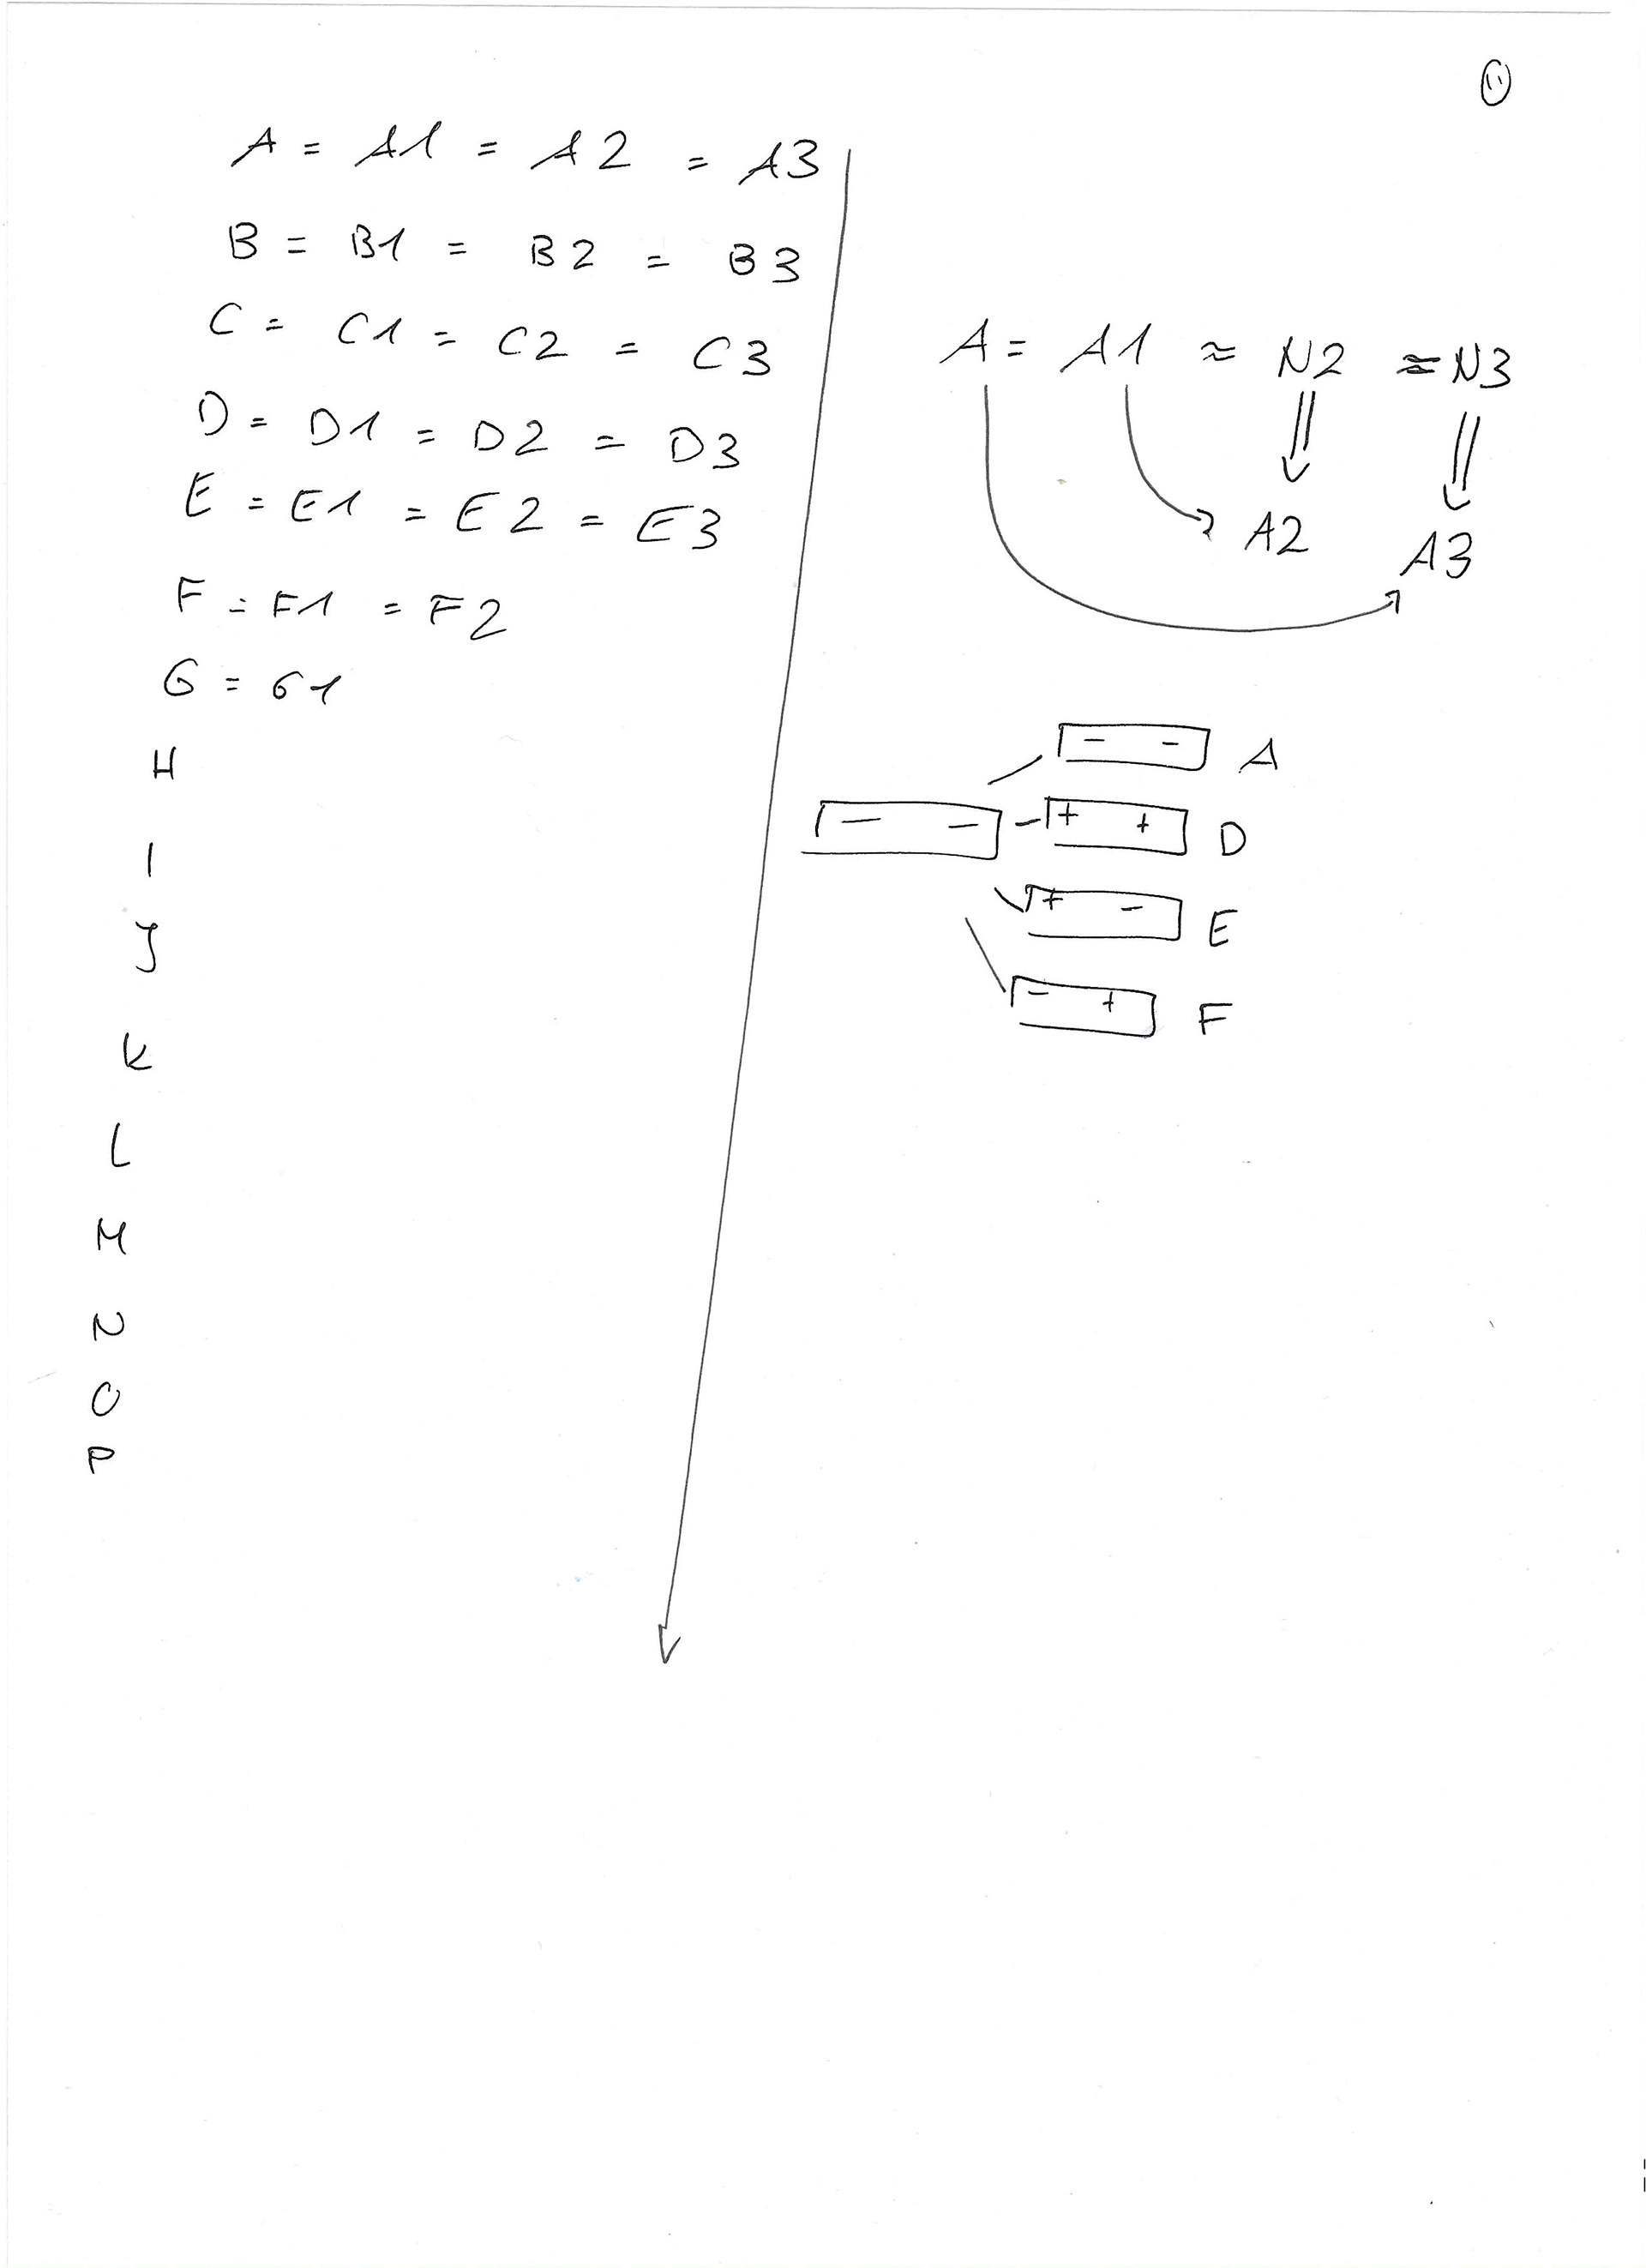 11
A = A1 = A2 = A3
B = B1 = B2 = B3
C = C1 = C2 = C3
D = D1 = D2 = D3
E = E1 = E2 = E3
F = F1 = F2
G = G1
H
I
J
K
L
M
N
O
P
A = A1 ≈ N2 ≈ N3
A2 A3
- - A
- - + + D
+ - E
- + F